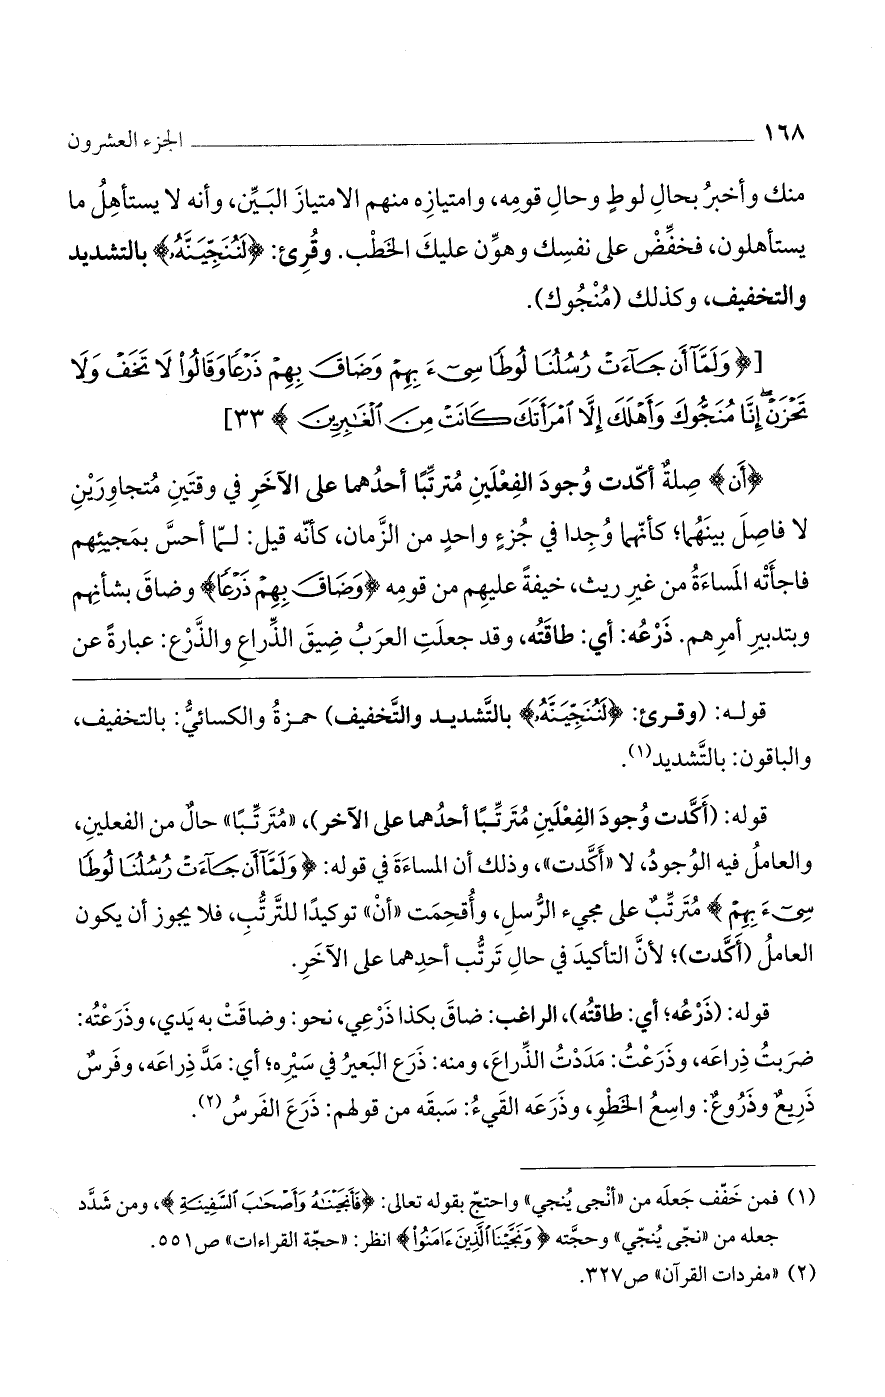 ١٦٨ الجزء العشرون
منك وأخبرُ بحالِ لوطٍ وحالِ قومِه، وامتيازِه منهم الامتيازَ البَيِّن، وأنه لا يستأهِلُ ما
يستأهلون، فخفِّضْ على نفسِك وهوِّن عليكَ الخَطْب. وقُرِئ: ﴿لَنُنَجِّيَنَّهُۥ﴾ بالتشديد
والتخفيف، وكذلك (مُنْجُوك).
[﴿ وَلَمَّآ أَن جَآءَتْ رُسُلُنَا لُوطًا سِىٓءَ بِهِمْ وَضَاقَ بِهِمْ ذَرْعًا وَقَالُوا۟ لَا تَخَفْ وَلَا
تَحْزَنْ ۖ إِنَّا مُنَجُّوكَ وَأَهْلَكَ إِلَّا ٱمْرَأَتَكَ كَانَتْ مِنَ ٱلْغَٰبِرِينَ ﴾ ٣٣]
﴿أَن﴾ صِلةٌ أكّدت وُجودَ الفِعْلَينِ مُترتِّبًا أحدُهما على الآخَرِ في وقتَينِ مُتجاورَيْنِ
لا فاصِلَ بينَهُما؛ كأنّهما وُجِدا في جُزءٍ واحدٍ من الزَّمان، كأنّه قيل: لـمّا أحسَّ بمَجيئِهم
فاجأَتْه المَساءَةُ من غيرِ ريث، خيفةً عليهم من قومِه ﴿وَضَاقَ بِهِمْ ذَرْعًا﴾ وضاقَ بشأنِهم
وبتدبيرِ أمرِهم. ذَرْعُه: أي: طاقَتُه، وقد جعلَتِ العرَبُ ضِيقَ الذِّراعِ والذَّرْع: عبارةً عن
قولـه: (وقـرئ: ﴿لَنُنَجِّيَنَّهُۥ﴾ بالتَّشديـد والتَّخفيف) حمـزةُ والكسائيُّ: بالتخفيف،
والباقون: بالتَّشديد(١).
قوله: (أَكَّدت وُجودَ الفِعْلَينِ مُتَرتِّبًا أحدُهما على الآخر)، «مُتَرتِّبًا» حالٌ من الفعلينِ،
والعاملُ فيه الوُجودُ، لا «أكَّدت»، وذلك أن المساءَةَ في قوله: ﴿ وَلَمَّآ أَن جَآءَتْ رُسُلُنَا لُوطًا
سِىٓءَ بِهِمْ ﴾ مُتَرتِّبٌ على مجيء الرُّسلِ، وأُقحِمَت «أنْ» توكيدًا للتَّرتُّبِ، فلا يجوز أن يكون
العاملُ (أكَّدت)؛ لأنَّ التأكيدَ في حالِ تَرتُّب أحدِهما على الآخَرِ.
قوله: (ذَرْعُه؛ أي: طاقتُه)، الراغب: ضاقَ بكذا ذَرْعِي، نحو: وضاقَتْ به يَدي، وذَرَعْتُه:
ضرَبتُ ذِراعَه، وذَرَعْتُ: مَدَدْتُ الذِّراعَ، ومنه: ذَرَع البَعيرُ في سَيْرِه؛ أي: مَدَّ ذِراعَه، وفَرسٌ
ذَرِيعٌ وذَرُوعٌ: واسِعُ الخَطْوِ، وذَرَعَه القَيءُ: سَبقَه من قولهم: ذَرَعَ الفَرسُ(٢).
(١) فمن خَفّف جَعلَه من «أَنْجى يُنجي» واحتجّ بقوله تعالى: ﴿فَأَنجَيْنَٰهُ وَأَصْحَٰبَ ٱلسَّفِينَةِ ﴾، ومن شدَّد
جعله من «نجّى يُنجّي» وحجَّته ﴿ وَنَجَّيْنَا ٱلَّذِينَ ءَامَنُوا۟ ﴾ انظر: «حجّة القراءات» ص٥٥١.
(٢) «مفردات القرآن» ص٣٢٧.